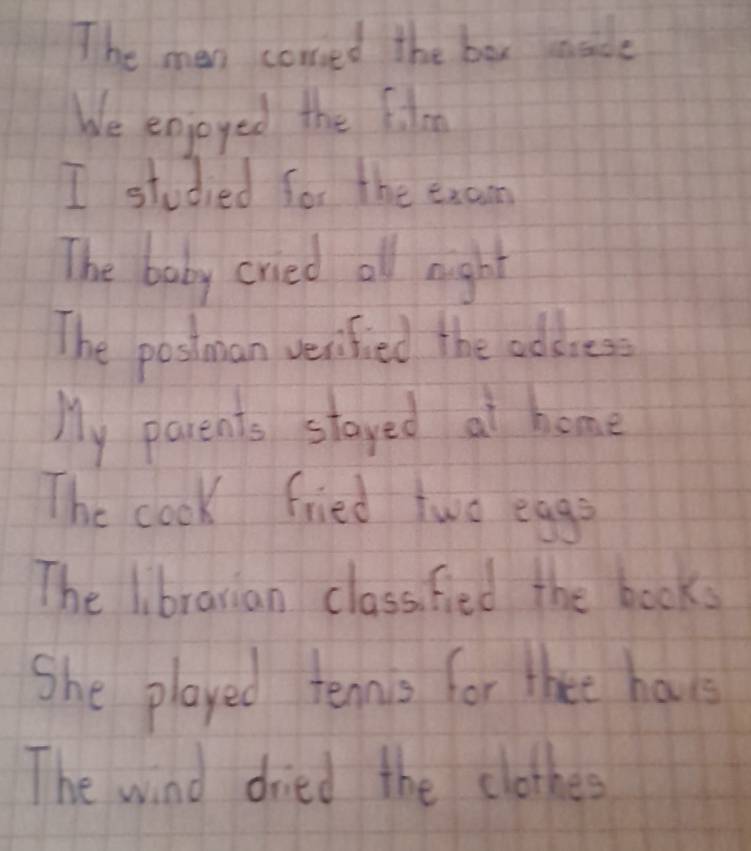 The men carried the box inside
We enjoyed the film
I studied for the exam
The baby cried all night
The postman verified the address
My parents stayed at home
The cook fried two eggs
The librarian classified the books
She played tennis for three hours
The wind dried the clothes